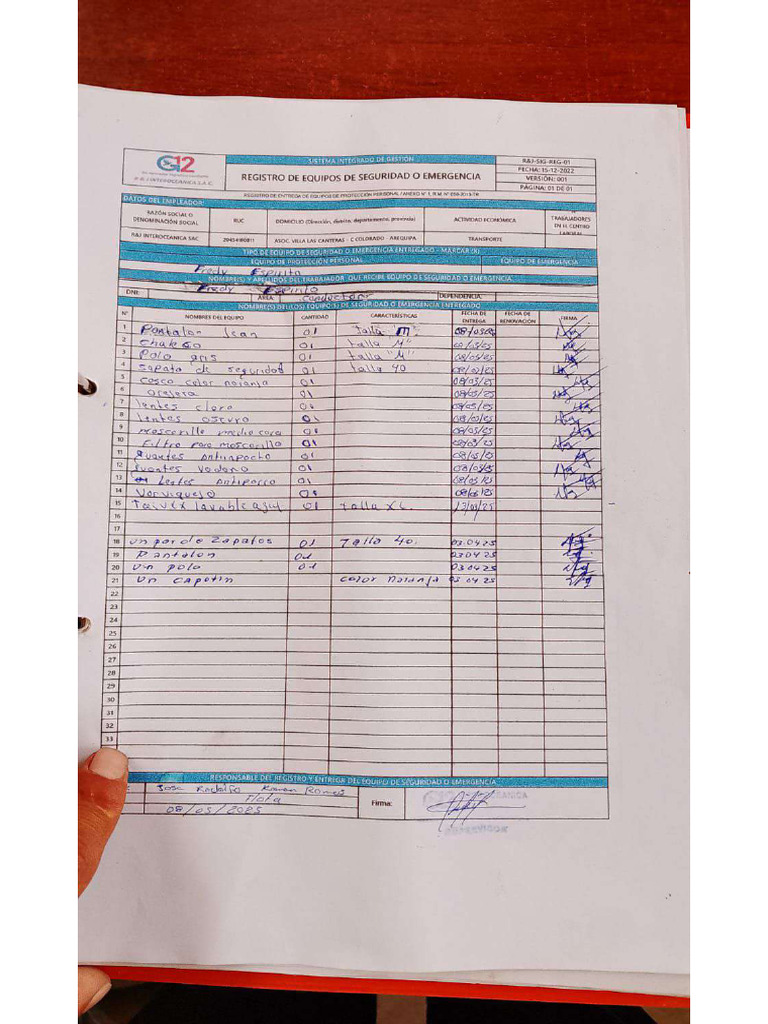 G12
R & J INTEROCEANICA S.A.C.
SISTEMA INTEGRADO DE GESTIÓN
REGISTRO DE EQUIPOS DE SEGURIDAD O EMERGENCIA
R&J-SIG-REG-01
FECHA: 15-12-2022
VERSIÓN: 001
PÁGINA: 01 DE 01
REGISTRO DE ENTREGA DE EQUIPOS DE PROTECCIÓN PERSONAL / ANEXO N° 1, R.M. N° 050-2013-TR
DATOS DEL EMPLEADOR:
RAZÓN SOCIAL O DENOMINACIÓN SOCIAL RUC DOMICILIO (Dirección, distrito, departamento, provincia) ACTIVIDAD ECONÓMICA TRABAJADORES EN EL CENTRO LABORAL
R&J INTEROCEANICA SAC ASOC. VILLA LAS CANTERAS - C COLORADO - AREQUIPA TRANSPORTE
TIPO DE EQUIPO DE SEGURIDAD O EMERGENCIA ENTREGADO - MARCAR (X)
EQUIPO DE PROTECCIÓN PERSONAL EQUIPO DE EMERGENCIA
Fredy Espirito
NOMBRE(S) Y APELLIDOS DEL TRABAJADOR QUE RECIBE EQUIPO DE SEGURIDAD O EMERGENCIA
Fredy Espirito
DNI: AREA conductor DEPENDENCIA:
NOMBRE(S) DEL(LOS) EQUIPO(S) DE SEGURIDAD O EMERGENCIA ENTREGADO
N° NOMBRES DEL EQUIPO CANTIDAD CARACTERÍSTICAS FECHA DE ENTREGA FECHA DE RENOVACIÓN FIRMA
1 Pantalon Jean 01 talla M
2 chaleco 01 talla "M" 08/03/25
3 Polo gris 01 talla "M" 08/03/25
4 sapato de seguridad 01 talla 40 08/03/25
5 casco color naranja 01 08/03/25
6 orejera 01 08/03/25
7 lentes claro 01 08/03/25
8 lentes oscuro 01 08/03/25
9 mascarilla media cara 01 08/03/25
10 Filtro para mascarilla 01 08/03/25
11 guantes Antiimpacto 01 08/03/25
12 guantes 01 08/03/25
13 Lentes Antiparra 01 08/03/25
14 Vorviquejo 01 08/03/25
15 lavable azul 01 talla XL
16
17
18 un par de zapatos 01 Talla 40. 03.04.25
19 Pantalon 01 03.04.25
20 un polo 01 03.04.25
21 un capotin color naranja 03.04.25
22
23
24
25
26
27
28
29
30
31
32
33
RESPONSABLE DEL REGISTRO Y ENTREGA DEL EQUIPO DE SEGURIDAD O EMERGENCIA
Jose Rodolfo
Flota
08/03/2025
Firma:
SUPERVISOR